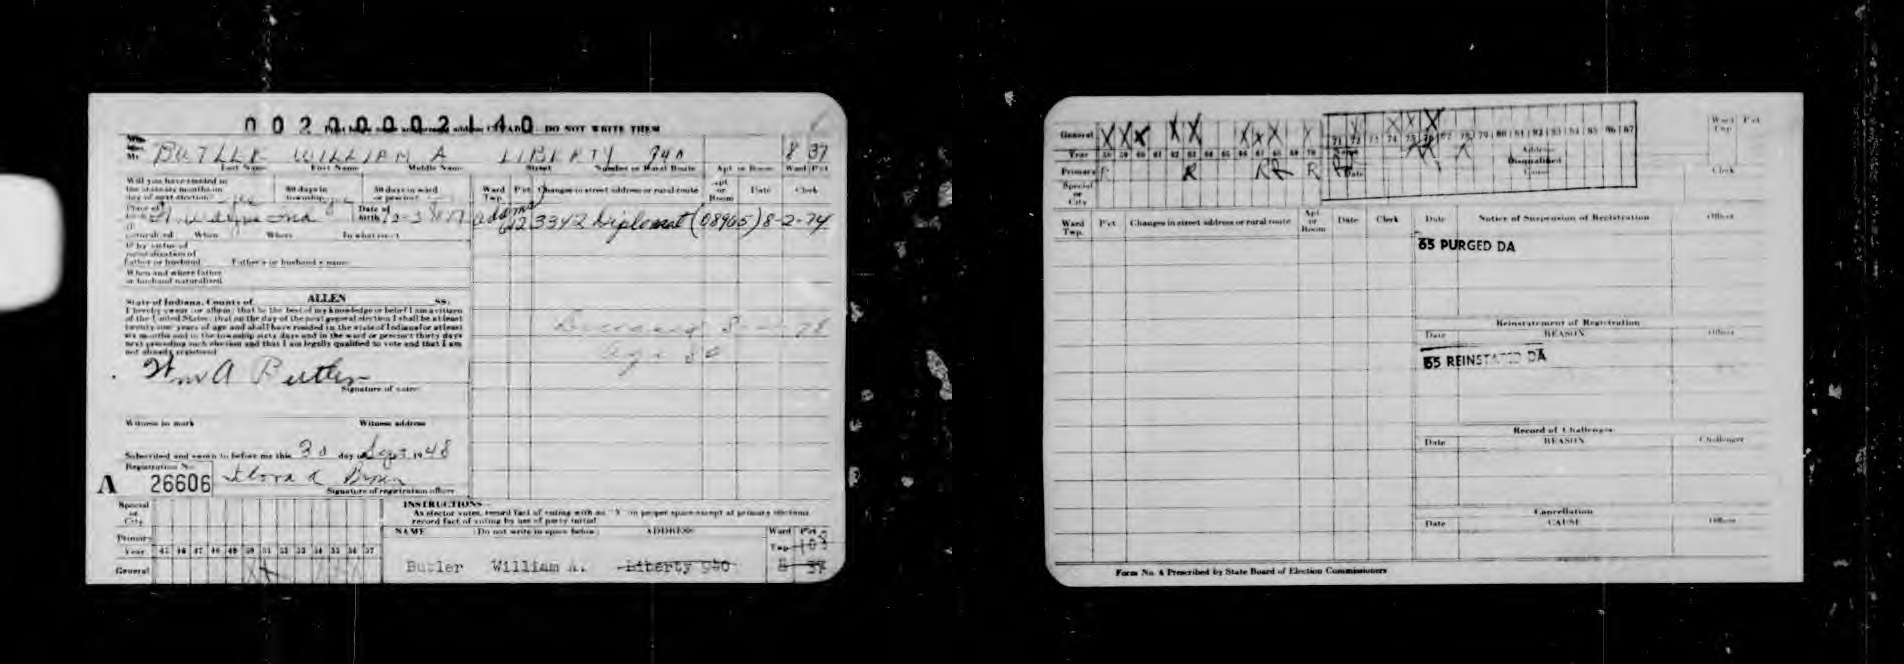 0020000002140
DO NOT WRITE THEM
Mr. BUTLER WILLIAM A LIBERTY 940 8 37
Last Name First Name Middle Name Street Number or Rural Route Apt or Room Ward Pct
Will you have resided in
the state six months on
day of next election? yes
60 days in
township
30 days in ward
or precinct
Ward Twp. Pct. Changes in street address or rural route Apt or Room Date Clerk
Date of
birth
Adams 12 3342 Diplomat (08965) 8-2-74
If
naturalized When Where In what court
If by virtue of
naturalization of
father or husband Father's or husband's name
When and where father
or husband naturalized
State of Indiana, County of ALLEN SS:
I hereby swear (or affirm) that to the best of my knowledge or belief I am a citizen
of the United States; that on the day of the next general election I shall be at least
twenty-one years of age and shall have resided in the state of Indiana for at least
six months and in the township sixty days and in the ward or precinct thirty days
next preceding such election and that I am legally qualified to vote and that I am
not already registered
Wm A Butler
Signature of voter
Witness to mark Witness address
Subscribed and sworn to before me this 30 day of Sep 1948
Registration No.
A 26606
Signature of registration officer
Special
or
City
Primary
Year 45 46 47 48 49 50 51 52 53 54 55 56 57
General
INSTRUCTIONS
As elector votes, record fact of voting with an "X" in proper space except at primary elections
record fact of voting by use of party initial
NAME (Do not write in space below) ADDRESS Ward Twp. Pct
Butler William A. Liberty 940 8 37
General X X X X X X X X X X X X
Year 58 59 60 61 62 63 64 65 66 67 68 69 70 71 72 73 74 75 76
Primary R R R R
Special
or
City
Disqualified
Ward
Twp. Pct.
Clerk
Ward
Twp. Pct Changes in street address or rural route Apt. or Room Date Clerk
Date Notice of Suspension of Registration Officer
65 PURGED DA
Reinstatement of Registration
Date REASON Officer
65 REINSTATED DA
Record of Challenges
Date REASON Challenger
Cancellation
Date CAUSE Officer
Form No. 4 Prescribed by State Board of Election Commissioners